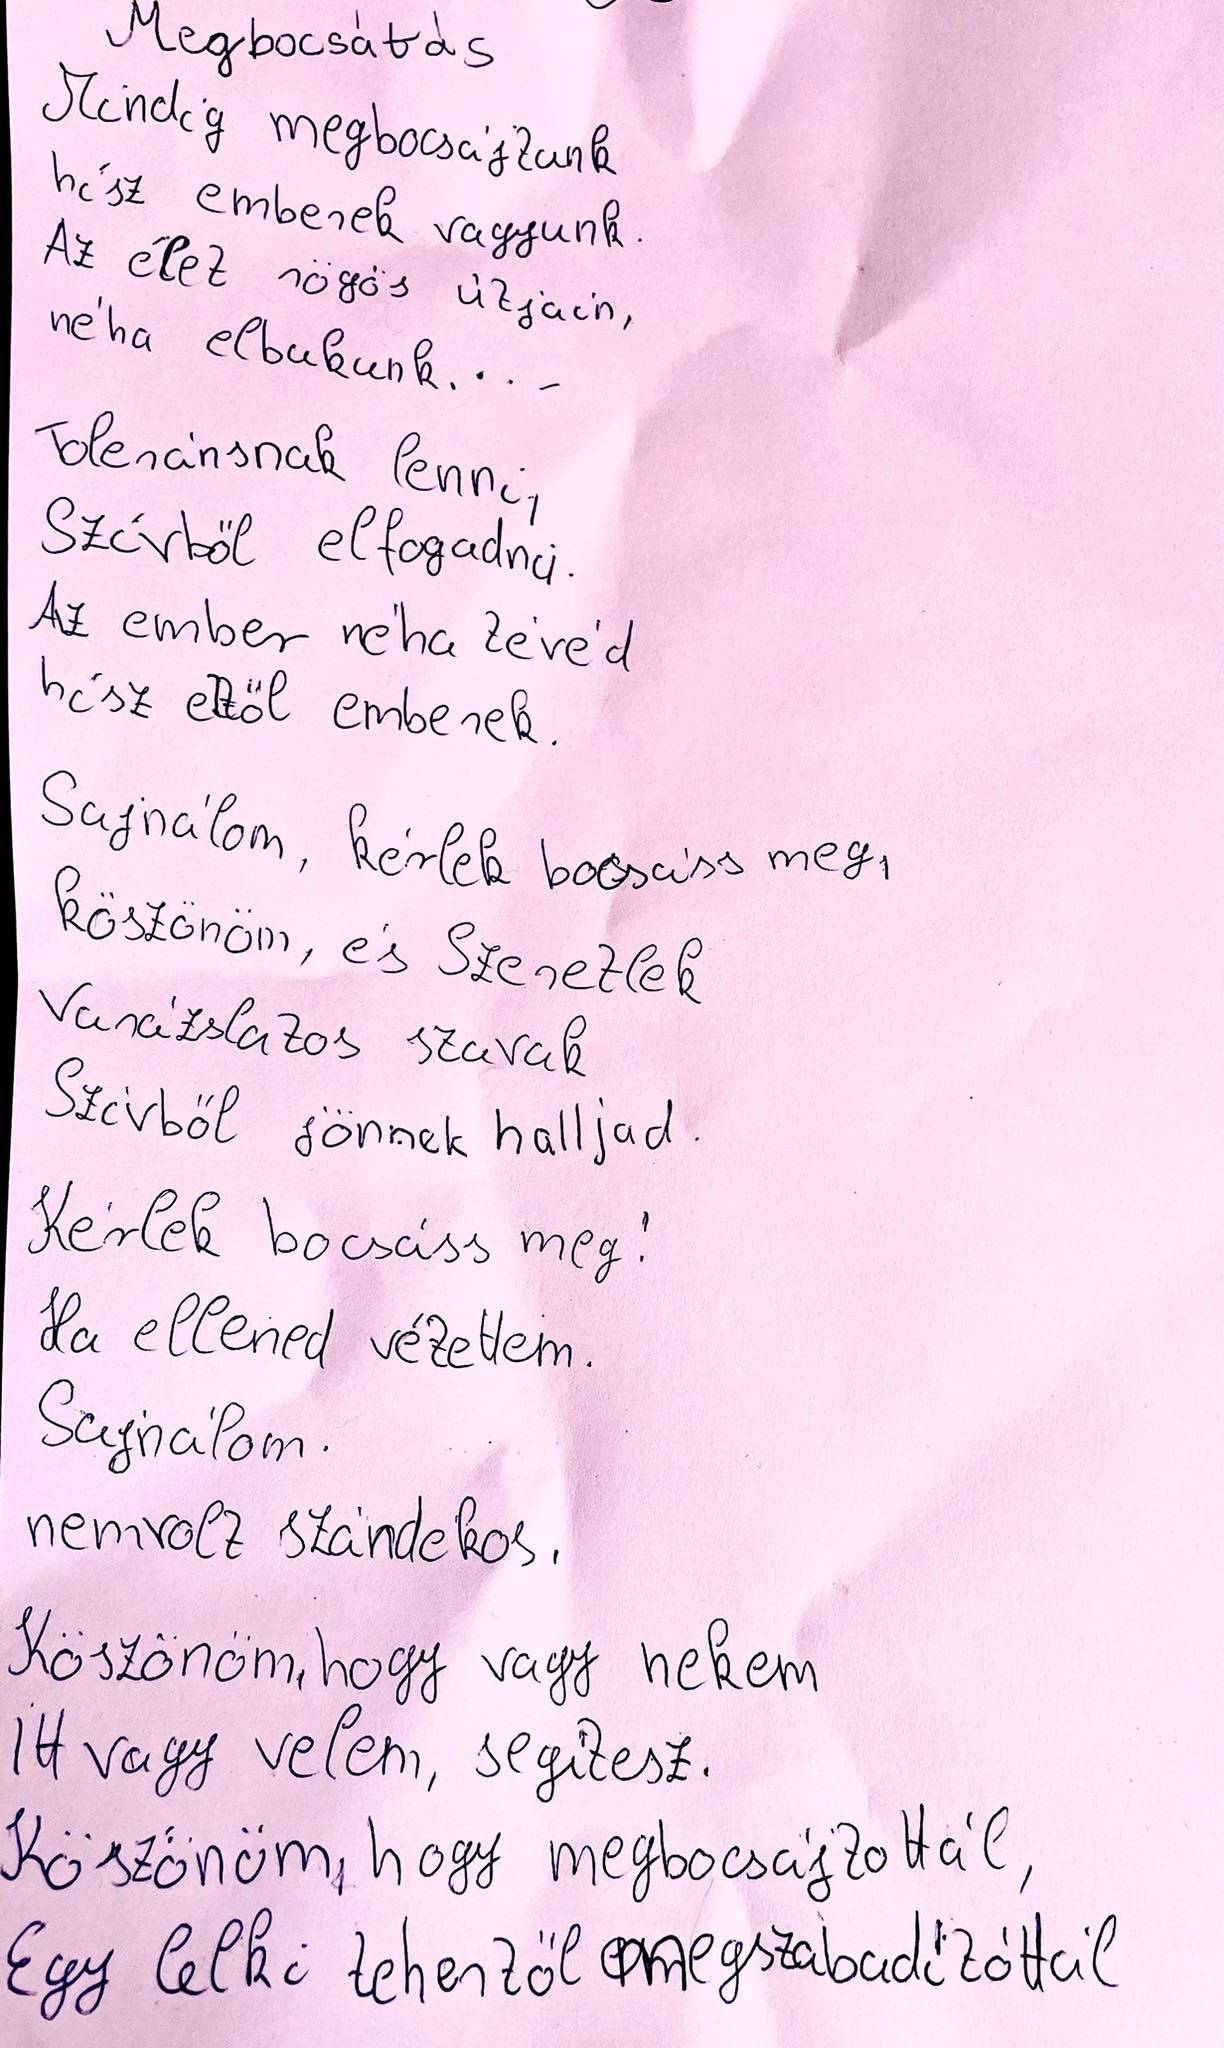 Megbocsátás
Mindig megbocsájtunk
hísz emberek vagyunk.
Az élet rögös útjain,
néha elbukunk....-
Toleránsnak lenni,
Szívből elfogadni.
Az ember néha téved
hísz ettől emberek.
Sajnálom, kérlek bocsáss meg,
köszönöm, és Szeretlek
Varázslatos szavak
Szívből jönnek halljad.
Kérlek bocsáss meg!
Ha ellened vétettem.
Sajnálom.
nemvolt szándekos.
Köszönöm, hogy vagy nekem
Itt vagy velem, segítesz.
Köszönöm, hogy megbocsájtottál,
Egy lelki tehertől megszabadítóttál